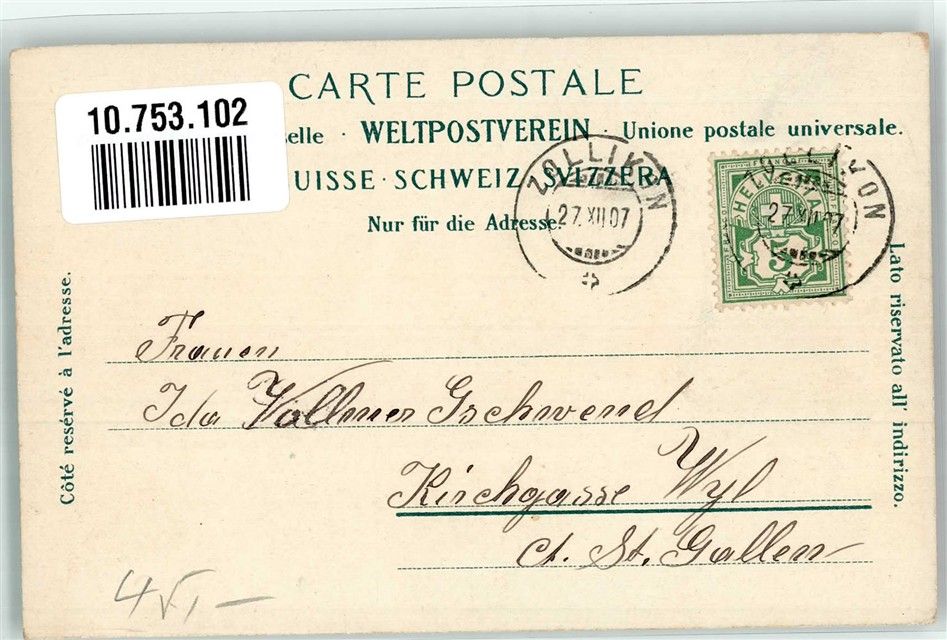 CARTE POSTALE
10.753.102
selle · WELTPOSTVEREIN · Unione postale universale.
UISSE · SCHWEIZ SVIZZERA
Nur für die Adresse.
ZOLLIKON
27.XII.07
ZOLLIKON
27.XII.07
FRANCO
HELVETIA
5
Côté reservé à l'adresse.
Lato riservato all' indirizzo.
Frauen
Ida Vollmer Gschwend
Kirchgasse Wyl
Ct. St. Gallen